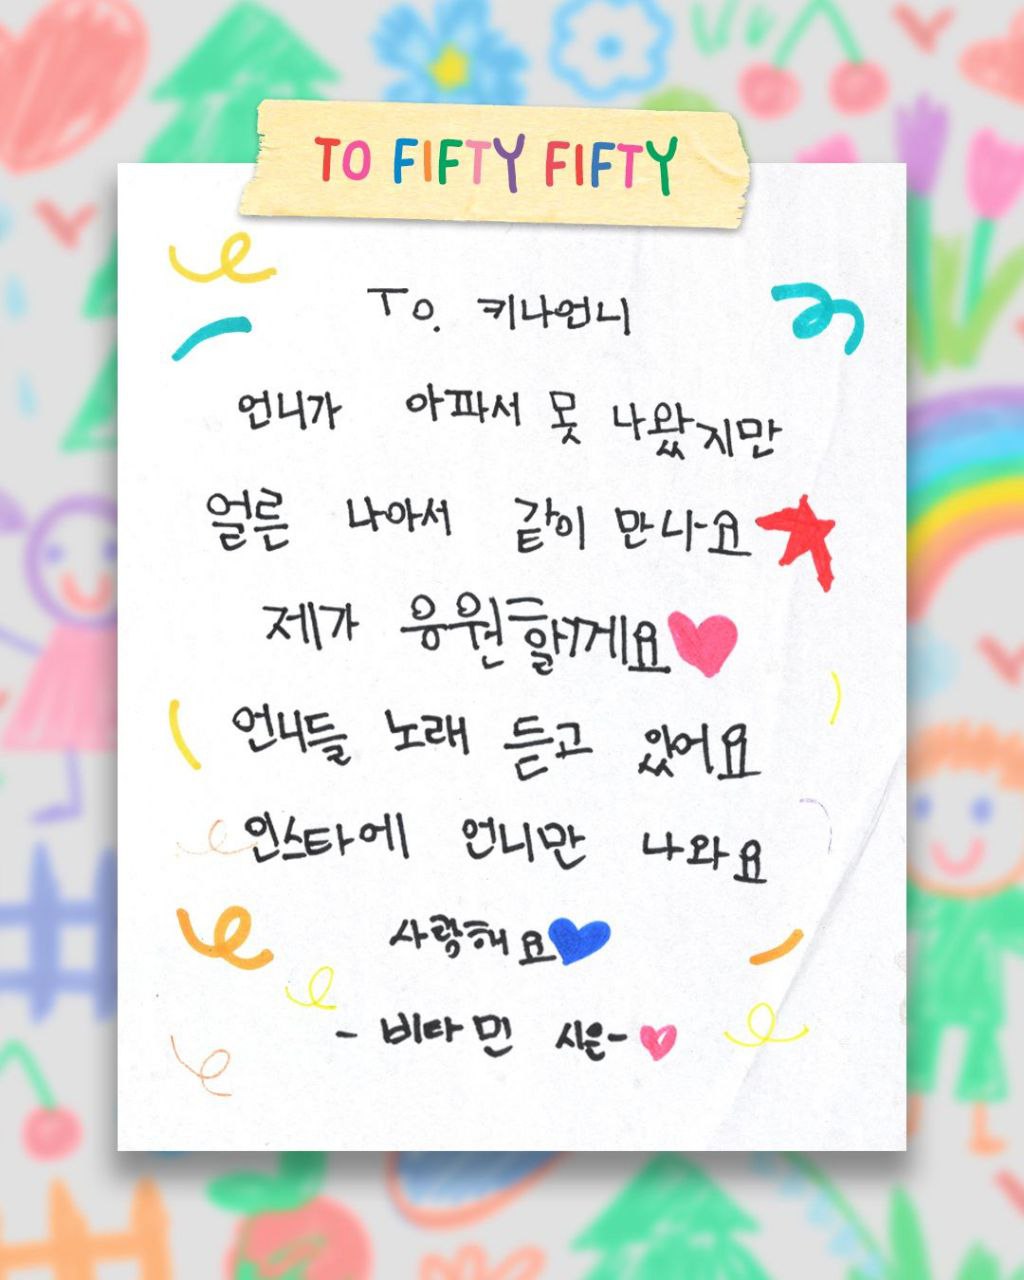 TO FIFTY FIFTY
To. 키나언니
언니가 아파서 못 나왔지만
얼른 나아서 같이 만나요
제가 응원할게요
언니들 노래 듣고 있어요
인스타에 언니만 나와요
사랑해요
- 비타민 시은-